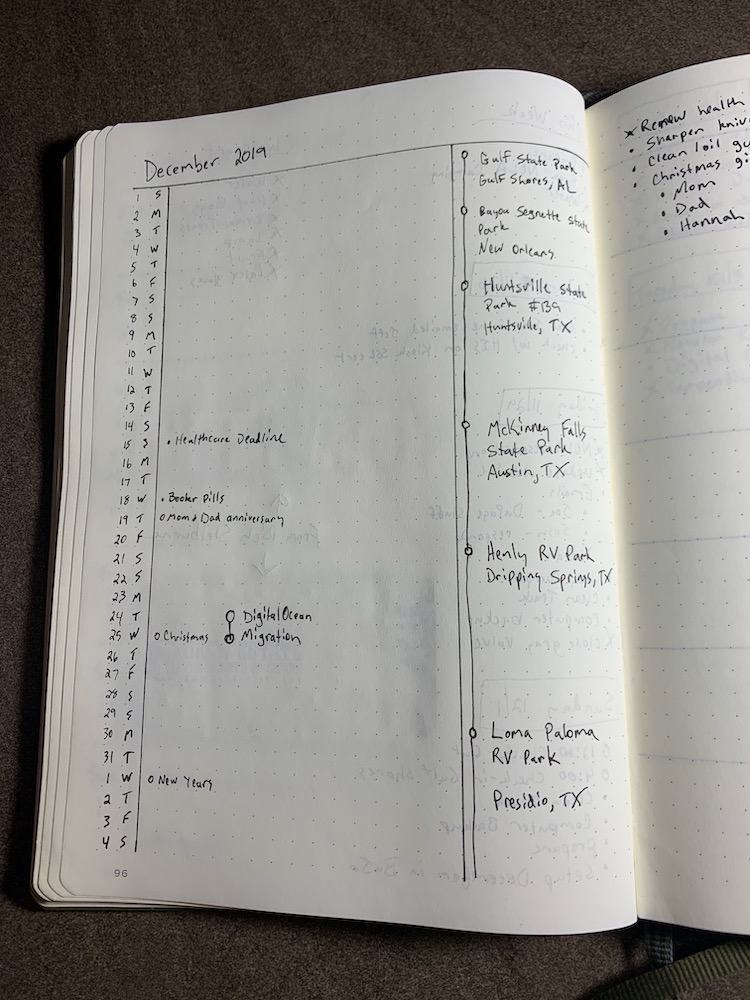 December 2019
1 S
2 M
3 T
4 W
5 T
6 F
7 S
8 S
9 M
10 T
11 W
12 T
13 F
14 S
15 S • Healthcare Deadline
16 M
17 T
18 W • Booker Pills
19 T o Mom & Dad anniversary
20 F
21 S
22 S
23 M
24 T DigitalOcean
25 W o Christmas Migration
26 T
27 F
28 S
29 S
30 M
31 T
1 W o New Years
2 T
3 F
4 S
96
Gulf State Park
Gulf Shores, AL
Bayou Segnette State
Park
New Orleans
Huntsville State
Park #139
Huntsville, TX
McKinney Falls
State Park
Austin, TX
Henly RV Park
Dripping Springs, TX
Loma Paloma
RV Park
Presidio, TX
Renew health
• Sharpen
• Clean/oil
• Christmas
• Mom
• Dad
• Hannah